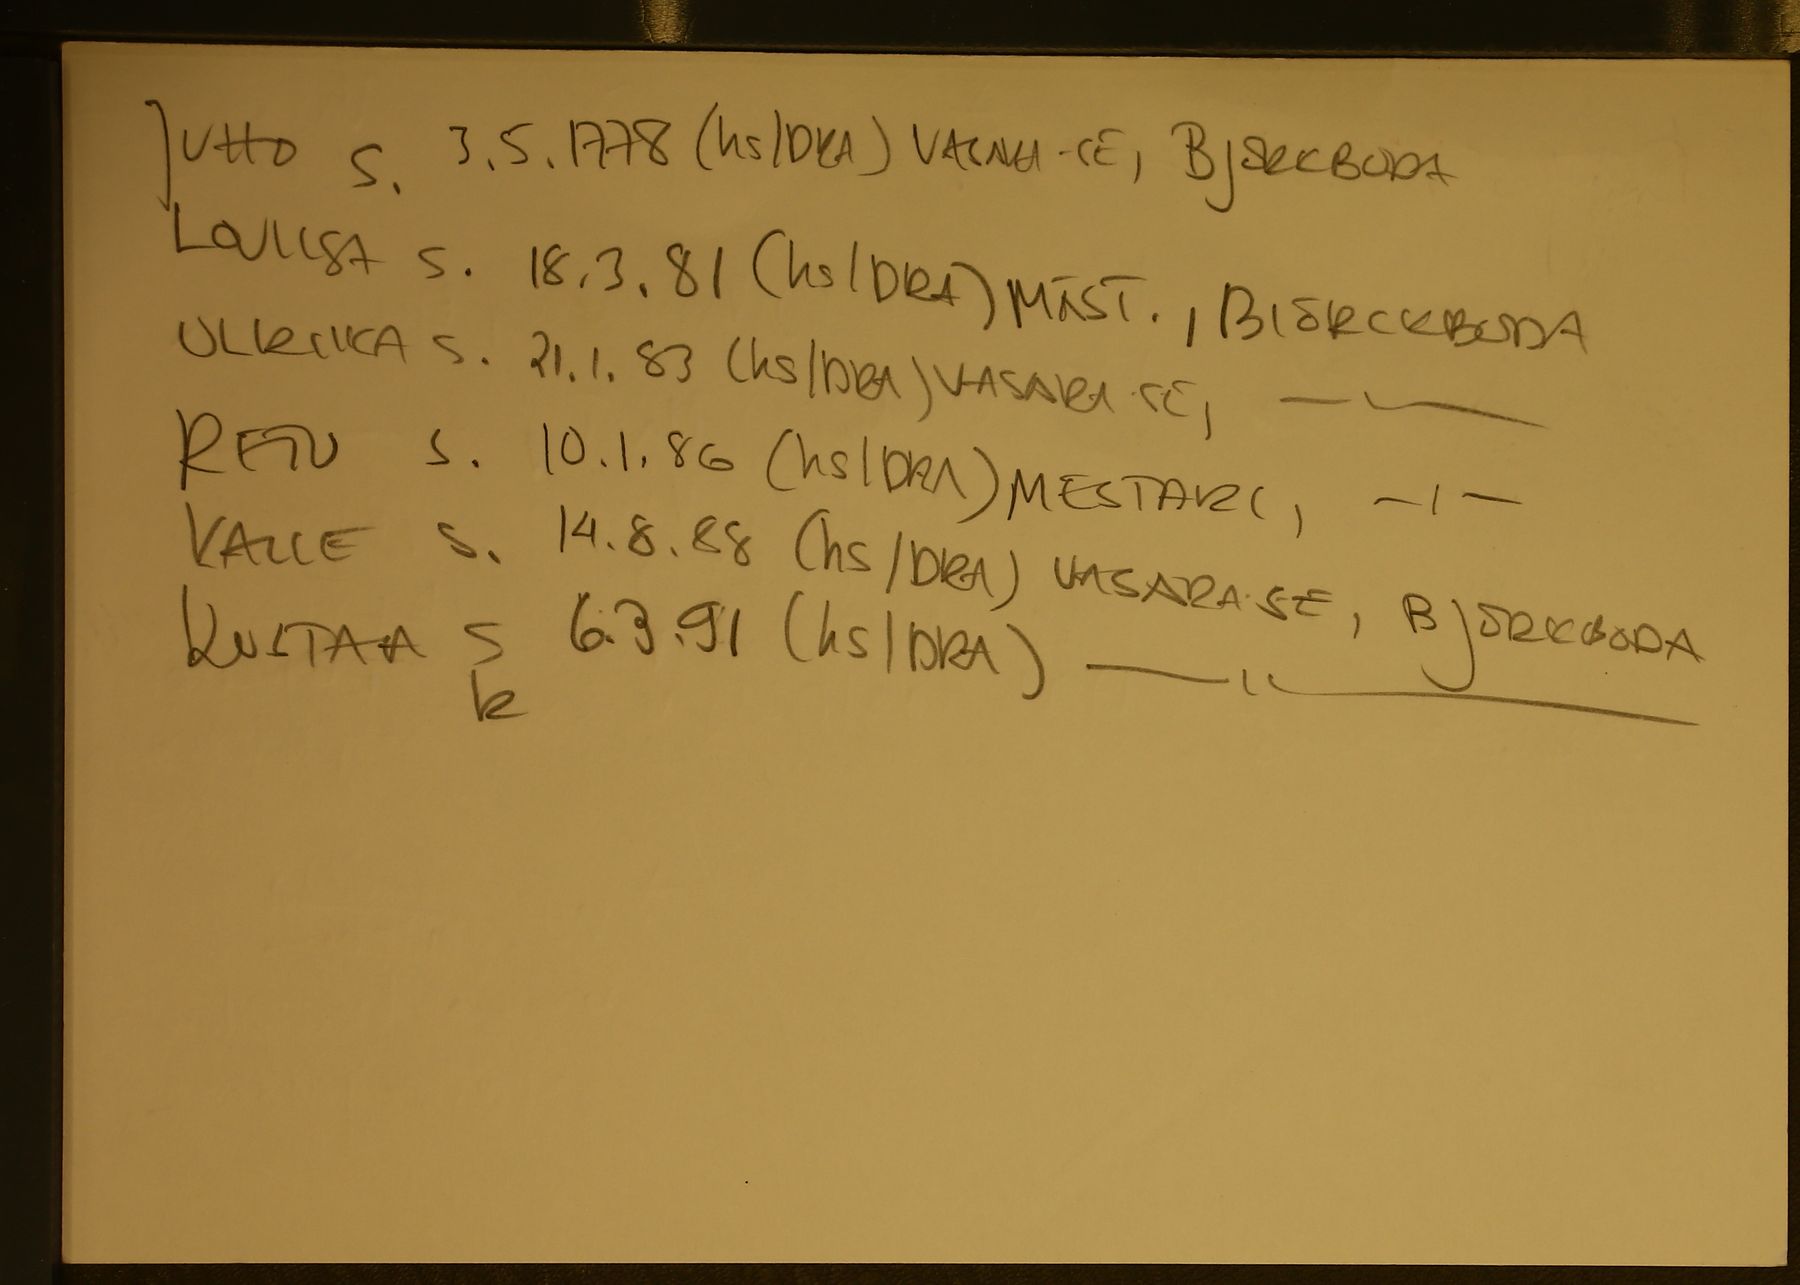 JUHO S. 3.5.1778 (hs/DRA) -SE, BJÖRKBODA
LOVIISA S. 18.3.81 (hs/DRA) MÄST., BIÖRCKBODA
ULRIIKA S. 21.1.83 (hs/DRA) VASARA-SE, —"—
RETU S. 10.1.86 (hs/DRA) MESTARI, —"—
KALLE S. 14.8.88 (hs/DRA) VASARA-SE, BJÖRKBODA
KUSTAA S 6.3.91 (hs/DRA) —"—
k